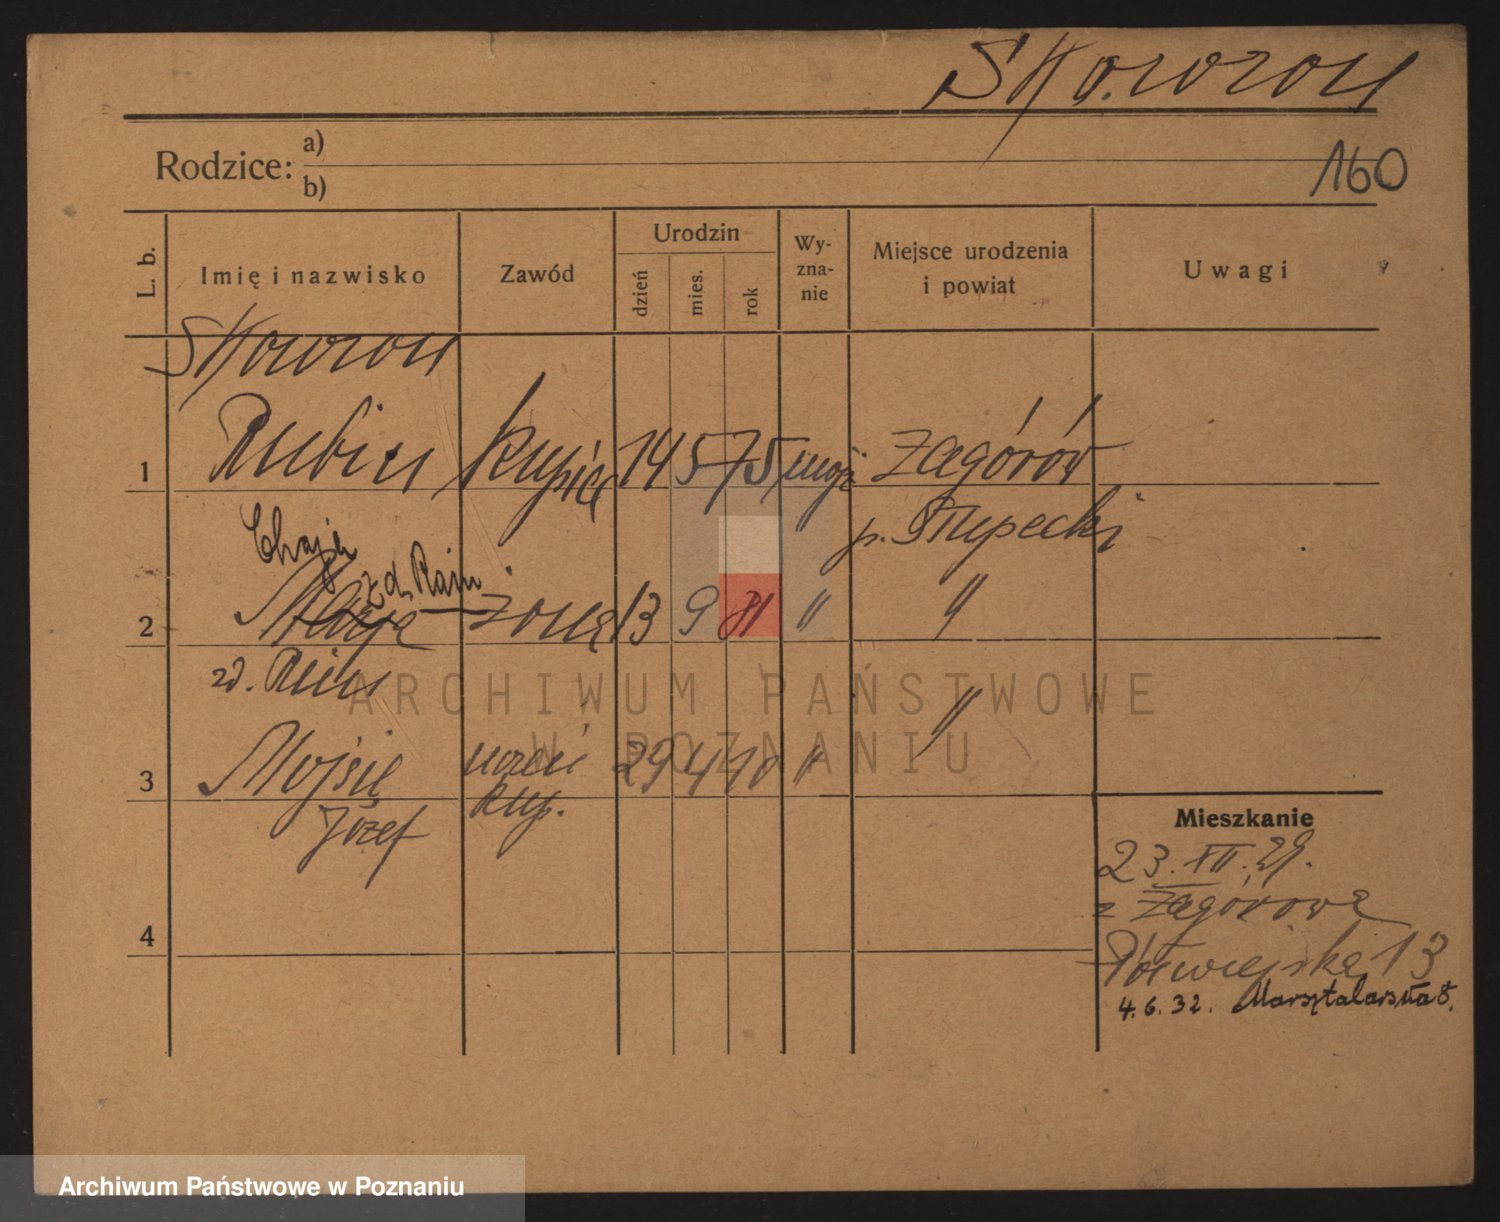 Skowron
160
Rodzice: a)
b)
L. b. Imię i nazwisko Zawód Urodzin dzień mies. rok Wy-zna-nie Miejsce urodzenia i powiat Uwagi
Skowron
1 Rubin kupiec 14 5 75 mojż Zagórów
p. Słupecki
Chaja
zd. Rain
2 Marja żona 13 9 81 " "
zd. Rein
3 Mojsie uczeń 29 4 10 " "
Józef kup.
4
Mieszkanie
23. XII. 29.
z Zagórowa
Półwiejska 13
4. 6. 32. Marsztalarska 8.
ARCHIWUM PAŃSTWOWE
W POZNANIU
Archiwum Państwowe w Poznaniu